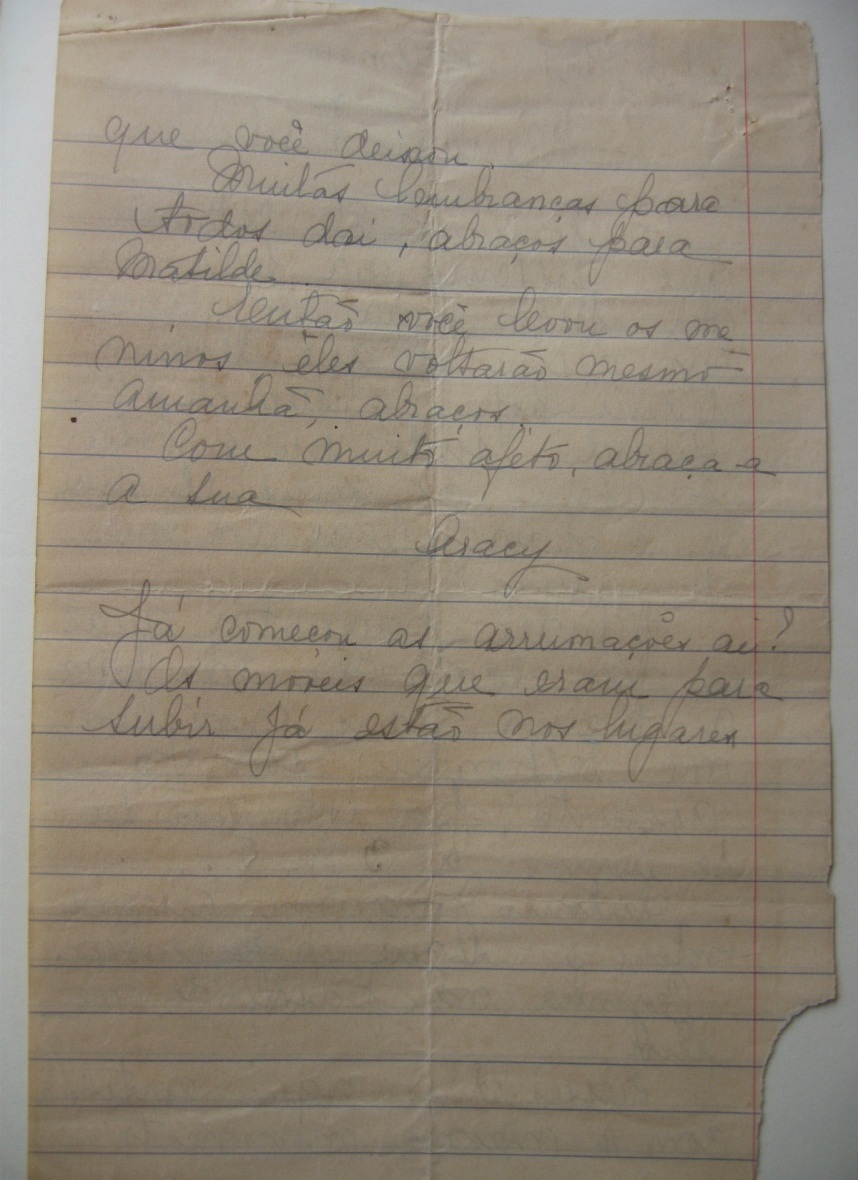 que você deixou.
Muitas lembranças para
todos daí, abraços para
Matilde.
Então você levou os me
ninos êles voltarão mesmo
amanhã, abraços.
Com muito afeto, abraça-a
a sua
Aracy
Já começou as arrumações aí?
Os móveis que eram para
subir já estão nos lugares